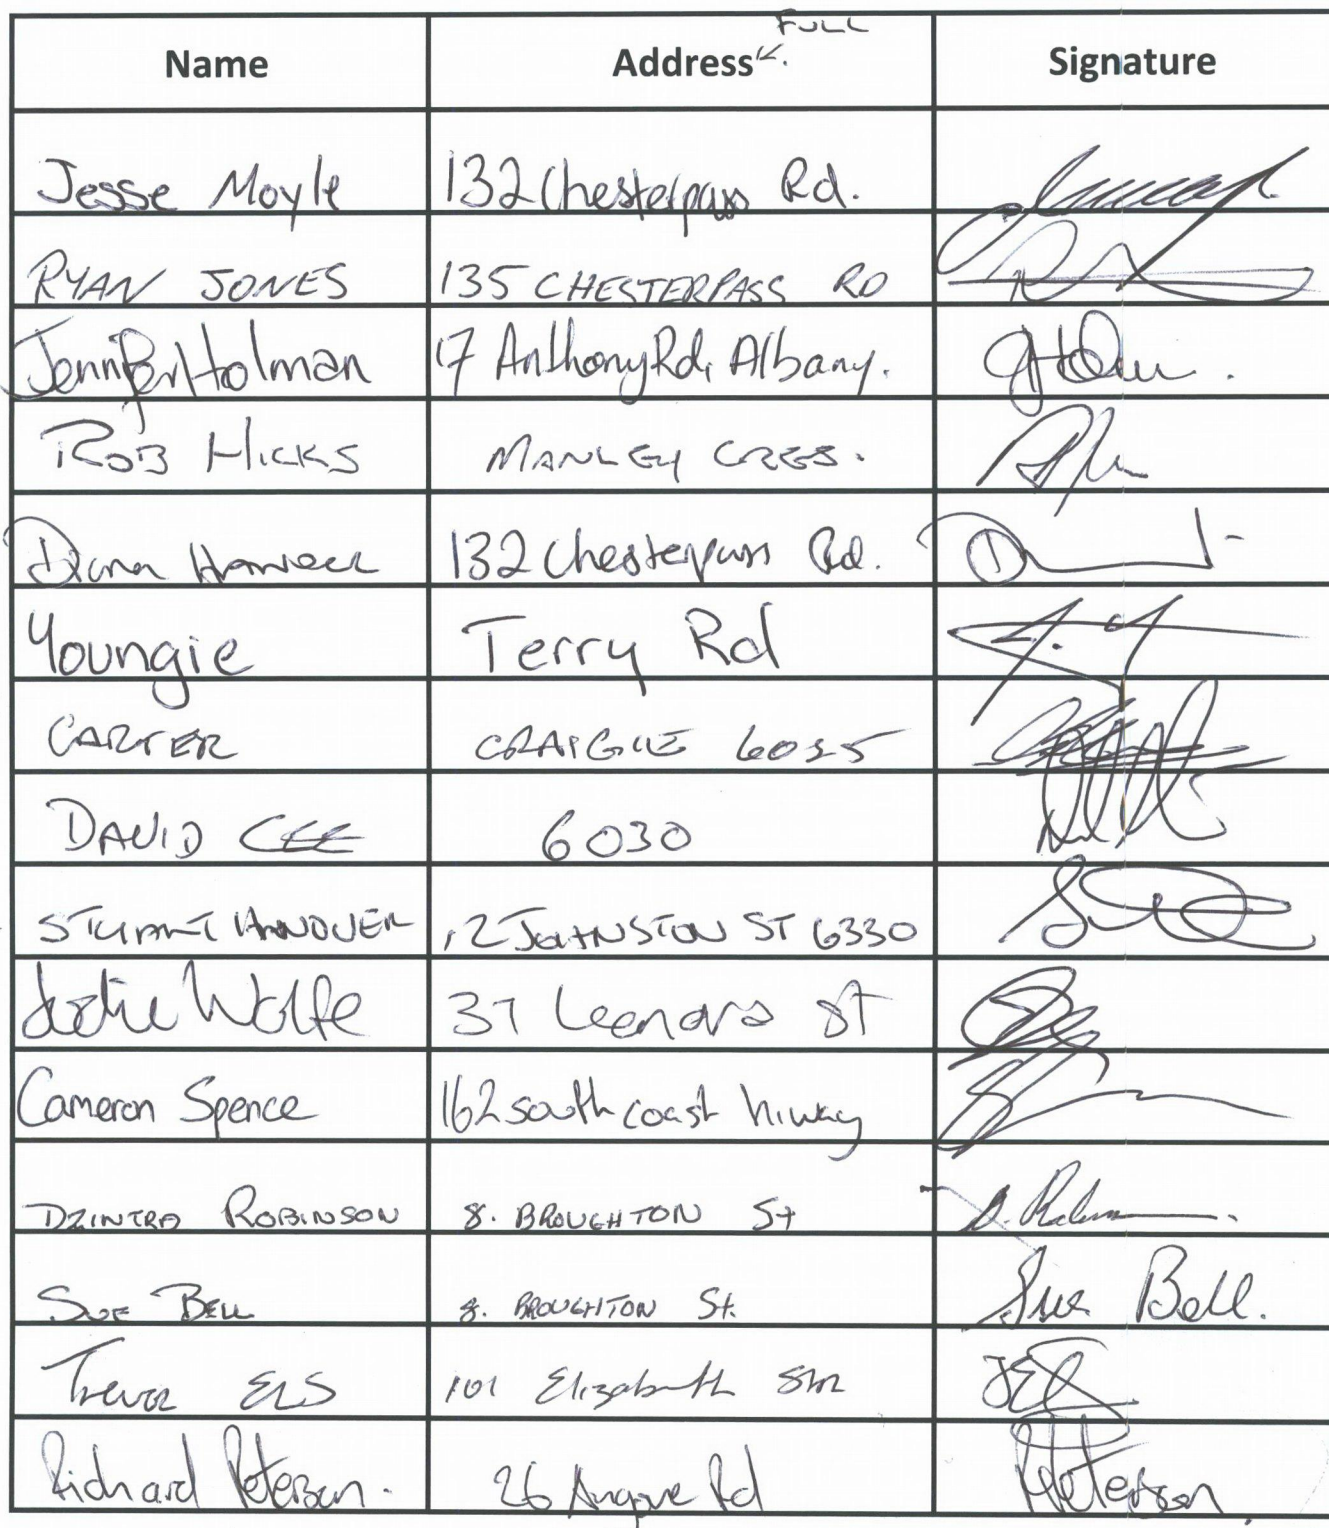 FULL
Name Address Signature
Jesse Moyle 132 Chesterpass Rd.
RYAN JONES 135 CHESTERPASS RD
Jennifer Holman 17 Anthony Rd, Albany. JHolm.
ROB HICKS MANLEY CRES.
132 Chesterpass Rd.
Youngie Terry Rd J.Y
CARTER CRAIGIE 6025
DAVID CEE 6030
STUART HANDVER 12 JOHNSTON ST 6330
Jodie Wolfe 37 Leonora St
Cameron Spence 162 south coast hiway
DZINTRA ROBINSON 8. BROUGHTON St
SUE BELL 8. BROUGHTON St. Sue Bell.
Trevor ELS 101 Elizabeth Str
Richard Peterson. 26 Angove Rd Peterson